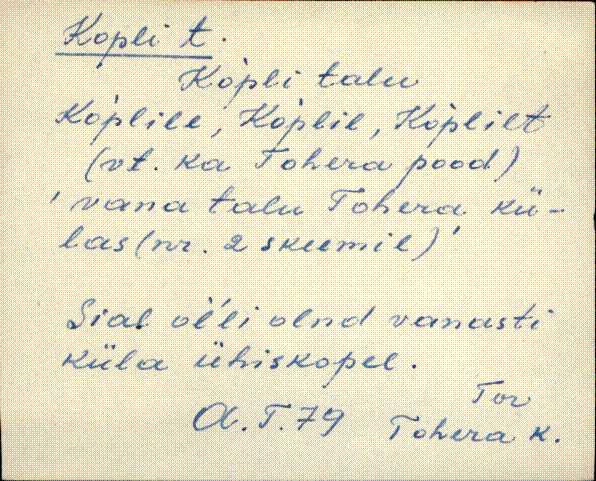 Kopli t.
Ko̍pli talu
Ko̍plile, Ko̍plil, Ko̍plilt
(vt. ka Tohera pood)
'vana talu Tohera kü-
las (nr. 2 skeemil)'
Sial ol'li olnd vanasti
küla ühiskopel.
A.T.79
Tor
Tohera k.